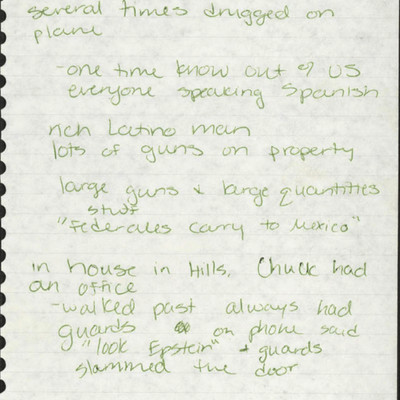 several times drugged on
plane
-one time know out of US
everyone speaking Spanish
rich Latino man
lots of guns on property
large guns & large quantities
stuff
"Federales carry to Mexico"
in house in Hills, Chuck had
an office
-walked past always had
guards on phone said
"look Epstein" + guards
slammed the door